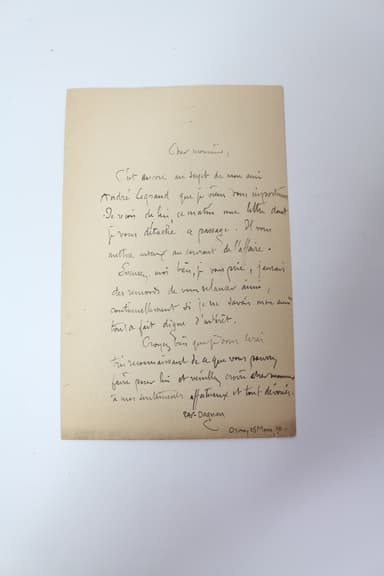 Cher monsieur,
C'est encore au sujet de mon ami
André Legrand que je viens vous importuner
Je reçois de lui ce matin une lettre dont
je vous détache ce passage. Il vous
mettra mieux au courant de l'affaire.
Excusez moi bien, je vous prie, j'aurais
des remords de vous relancer ainsi,
continuellement si je ne savais mon ami
tout à fait digne d'intérêt.
Croyez bien que je vous serai
très reconnaissant de ce que vous pouvez
faire pour lui et veuillez croire cher monsieur
à mes sentiments affectueux et tout dévoués.
Dagnan
Mars